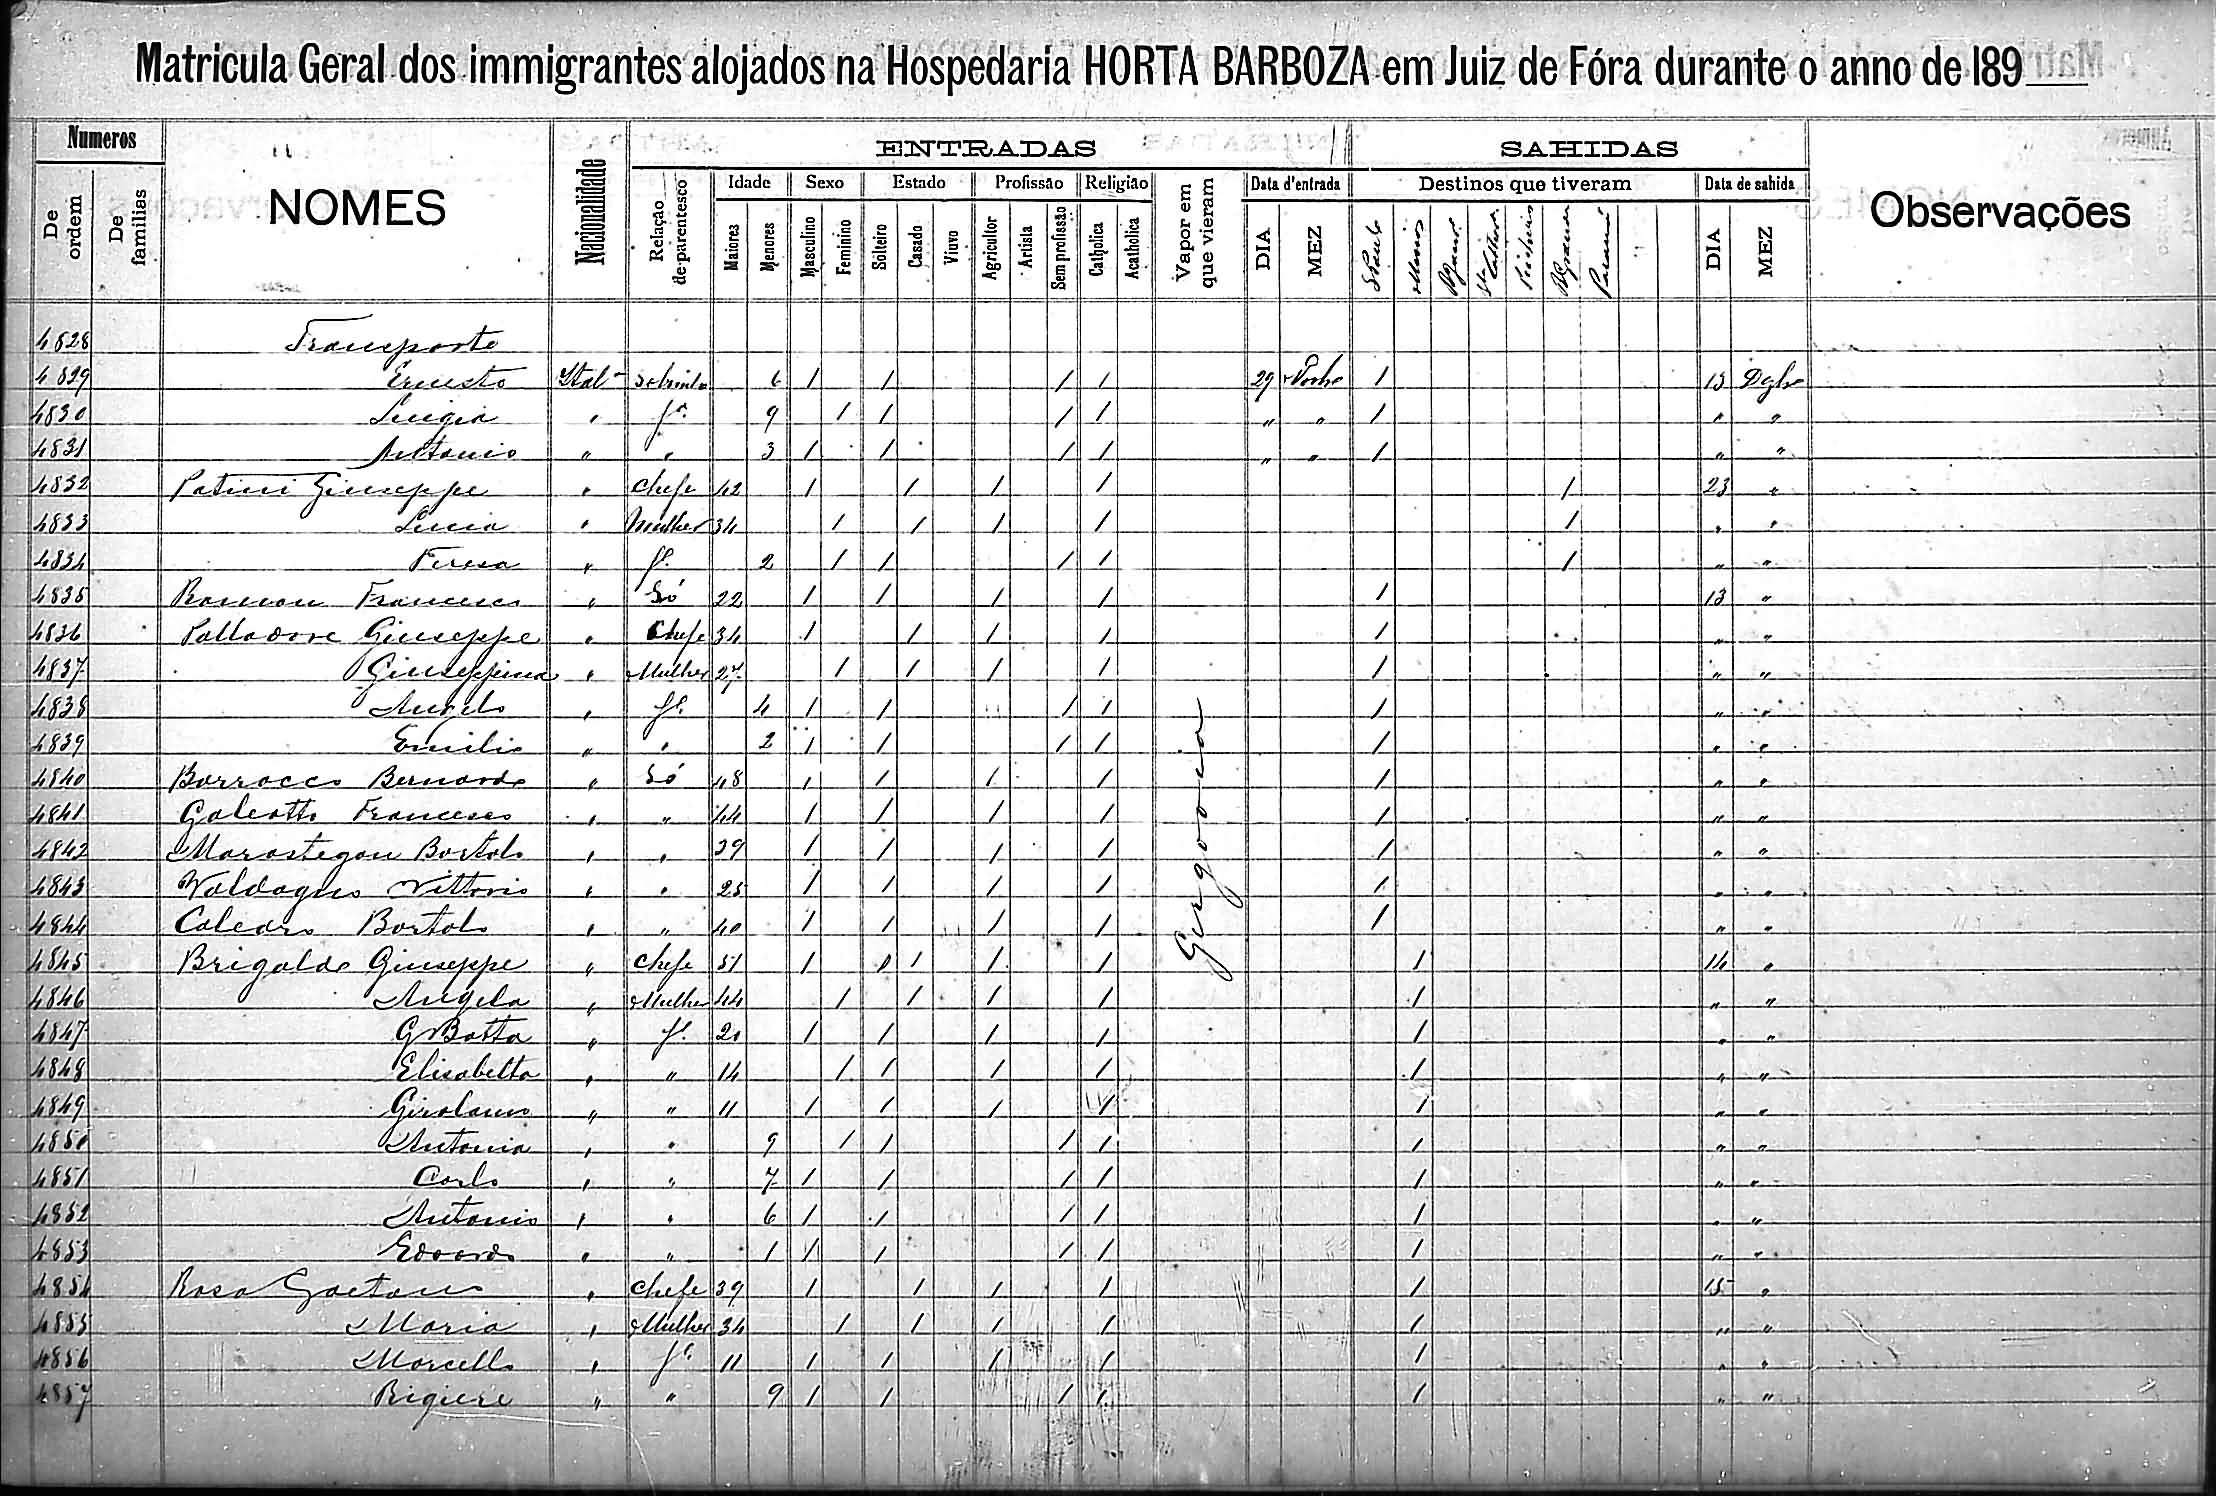 Matricula Geral dos immigrantes alojados na Hospedaria HORTA BARBOZA em Juiz de Fóra durante o anno de 189
Numeros
De ordem
De familias
NOMES
Nacionalidade
ENTRADAS
Relação de parentesco
Idade
Maiores
Menores
Sexo
Masculino
Feminino
Estado
Solteiro
Casado
Viuvo
Profissão
Agricultor
Artista
Sem profissão
Religião
Catholica
Acatholica
Vapor em que vieram
Data d'entrada
DIA
MEZ
SAHIDAS
Destinos que tiveram
S Paulo
Minas
Paraná
Data de sahida
DIA
MEZ
Observações
4828 Transporte
4829 Ernesto Ital sobrinho 6 1 1 1 1 29 Novbr 1 13 Dzbr
4830 Luigia " fa. 9 1 1 1 1 " " 1 " "
4831 Antonio " " 3 1 1 1 1 " " 1 " "
4832 Patini Giuseppe " Chefe 42 1 1 1 1 1 23 "
4833 Lucia " Mulher 34 1 1 1 1 1 " "
4834 Teresa " fa. 2 1 1 1 1 1 " "
4835 Francesco " Só 22 1 1 1 1 1 13 "
4836 Palladore Giuseppe " Chefe 34 1 1 1 1 1 " "
4837 Giuseppina " Mulher 27 1 1 1 1 1 " "
4838 Angelo " fo. 4 1 1 1 1 1 " "
4839 Emilio " " 2 1 1 1 1 1 " "
4840 Barracco Bernardo " Só 48 1 1 1 1 1 " "
4841 Galeotto Francesco " " 44 1 1 1 1 1 " "
4842 Marostegan Bortolo " " 39 1 1 1 1 1 " "
4843 Valdagno Vittorio " " 25 1 1 1 1 1 " "
4844 Calearo Bortolo " " 40 1 1 1 1 1 " "
4845 Brigaldo Giuseppe " Chefe 51 1 1 1 1 1 14 "
4846 Angela " Mulher 44 1 1 1 1 1 " "
4847 G Batta " fo. 20 1 1 1 1 1 " "
4848 Elisabetta " " 14 1 1 1 1 1 " "
4849 Girolamo " " 11 1 1 1 1 1 " "
4850 Antonia " " 9 1 1 1 1 1 " "
4851 Carlo " " 7 1 1 1 1 1 " "
4852 Antonio " " 6 1 1 1 1 1 " "
4853 Edoardo " " 1 1 1 1 1 1 " "
4854 Rosa Gaetano " Chefe 39 1 1 1 1 1 15 "
4855 Maria " Mulher 34 1 1 1 1 1 " "
4856 Marcello " fo 11 1 1 1 1 1 " "
4857 Rigiere " " 9 1 1 1 1 1 " "
Gergovia